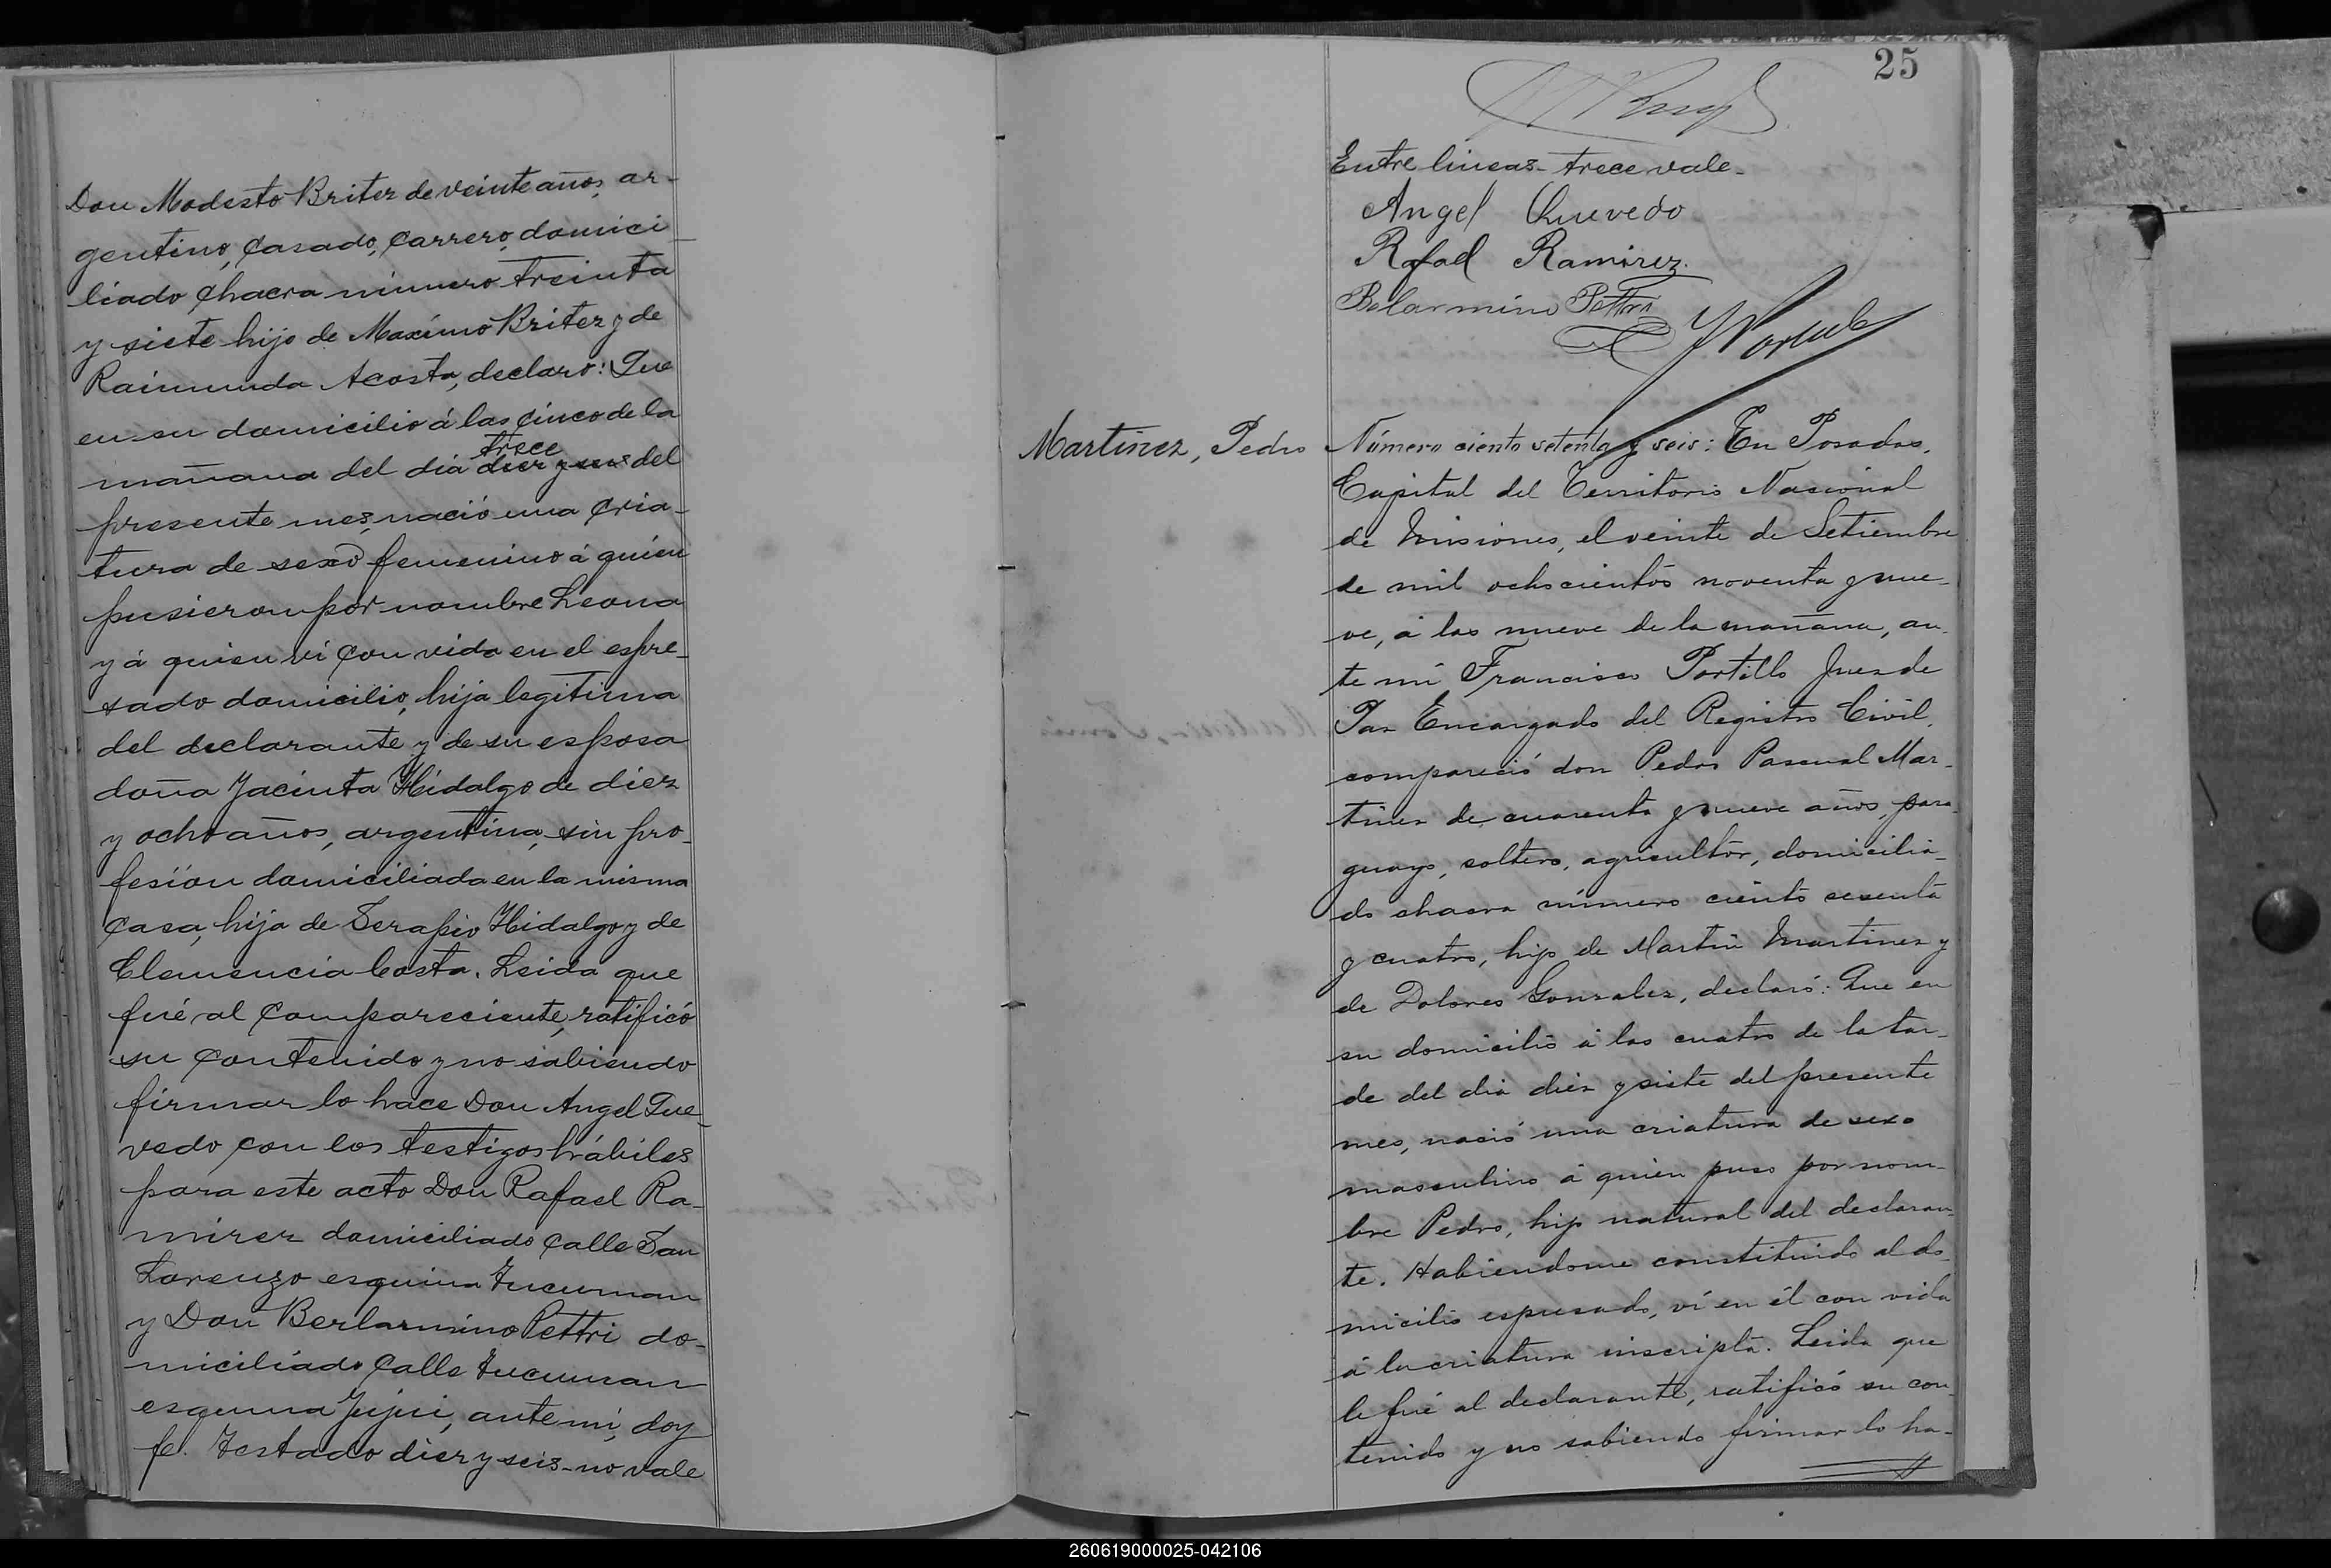 Don Modesto Britez de veinte años, ar-
gentino, casado, carrero, domici
liado chacra número treinta
y siete hijo de Maximo Britez y de
Raimunda Acosta, declaro: Que
en su domicilio á las cinco de la
trece
mañana del dia diez y seis del
presente mes, nació una cria-
tura de sexo femenino á quien
pusieron por nombre Leona
y á quien vi con vida en el espre-
sado domicilio, hija legitima
del declarante y de su esposa
doña Jacinta Hidalgo de diez
y ocho años, argentina, sin pro-
fesion domiciliada en la misma
casa, hija de Serapio Hidalgo y de
Clemencia Costa. Leida que
fué al compareciente, ratificó
su contenido y no sabiendo
firmar lo hace Don Angel Que-
vedo con los testigos hábiles
para este acto Don Rafael Ra-
mirez domiciliado calle San
Lorenzo esquina Tucuman
y Don Berlarmino Pettri do-
miciliado calle Tucuman
esquina Jujui, ante mi, doy
fe. Testado diez y seis-no vale
25
Entre lineas-trece vale-
Angel Quevedo
Rafael Ramirez.
Belarmino Pettri
Martinez, Pedro
Número ciento setenta y seis: En Posadas,
Capital del Territorio Nacional
de Misiones, el veinte de Setiembre
de mil ochocientos noventa y nue-
ve, á las nueve de la mañana, an-
te mi Francisco Portillo Juez de
Paz Encargado del Registro Civil,
compareció don Pedro Pascual Mar-
tinez de cuarenta y nueve años, para-
guayo, soltero, agricultor, domicilia-
do chacra número ciento sesenta
y cuatro, hijo de Martin Martinez y
de Dolores Gonzalez, declaró: Que en
su domicilio á las cuatro de la tar-
de del dia diez y siete del presente
mes, nació una criatura de sexo
masculino á quien puso por nom-
bre Pedro, hijo natural del declaran-
te. Habiendome constituido al do-
micilio espresado, ví en él con vida
á la criatura inscripta. Leida que
le fué al declarante, ratificó su con-
tenido y no sabiendo firmar lo ha-
260619000025-042106